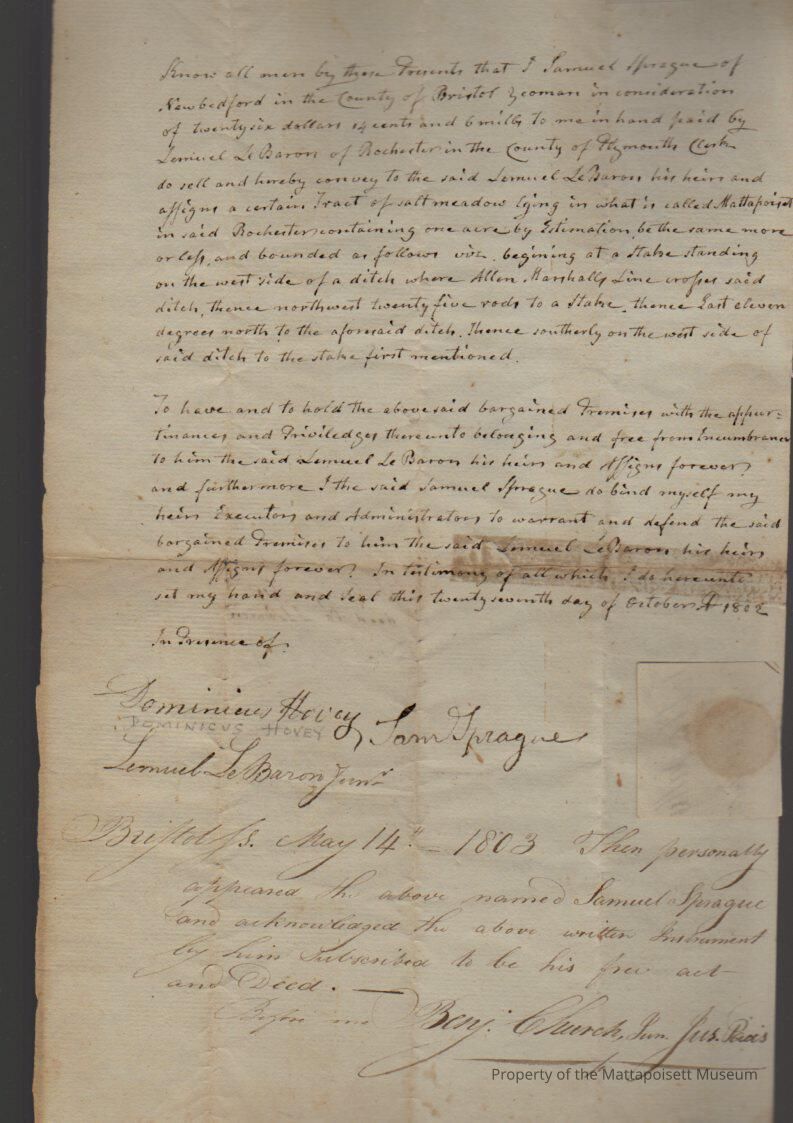 Know all men by these Presents that I Samuel Sprague of
Newbedford in the County of Bristol Yeoman in consideration
of twentysix dollars 14 cents and 6 mills to me in hand paid by
Lemuel LeBaron of Rochester in the County of Plymouth Clerk
do sell and hereby convey to the said Lemuel LeBaron his heirs and
assigns a certain Tract of saltmeadow lying in what is called Mattapoiset
in said Rochester containing one acre by Estimation, be the same more
or less, and bounded as follows viz. begining at a Stake standing
on the west side of a ditch where Allen Marshalls Line crosses said
ditch, thence northwest twenty five rods to a Stake, thence East eleven
degrees north to the aforesaid ditch. Thence southerly on the west side of
said ditch to the stake first mentioned.
To have and to hold the abovesaid bargained Premises with the appur=
tinances and Priviledges thereunto belonging and free from Incumbrance
to him the said Lemuel LeBaron his heirs and Assigns forever,
and furthermore I the said Samuel Sprague do bind myself my
heirs Executors and Administrators to warrant and defend the said
bargained Premises to him the said Lemuel LeBaron his heirs
and Assigns forever. In testimony of all which, I do hereunto
set my hand and Seal this twentyseventh day of October 1802
In Presence of
Dominicus Hovey
DOMINICUS HOVEY
Sam Sprague
Lemuel LeBaron Junr
Bristol ss. May 14th — 1803 Then personally
appeared the above named Samuel Sprague
and acknowledged the above written Instrument
by him Subscribed to be his free act
and Deed. —
Before me Benj. Church, Jun. Jus. Pacis
Property of the Mattapoisett Museum